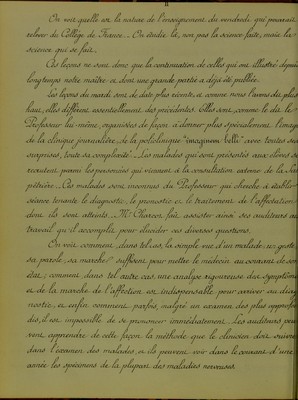 II
On voit quelle est la nature de l'enseignement du vendredi qui pourrait
relever du Collège de France. — On étudie là, non pas la science faite, mais la
science qui se fait.
Ces leçons ne sont donc que la continuation de celles qui ont illustré depuis
longtemps notre maître et dont une grande partie a déjà été publiée.
Les leçons du mardi sont de date plus récente, et comme nous l'avons dit plus
haut, elles diffèrent essentiellement des précédentes. Elles sont, comme le dit le
Professeur lui-même, organisées de façon à donner plus spécialement l'image
de la clinique journalière, de la policlinique "imaginem belli" avec toutes ses
surprises, toute sa complexité. — Les malades qui sont présentés aux élèves se
recrutent parmi les personnes qui viennent à la consultation externe de la Sal-
pêtrière. Ces malades sont inconnus du Professeur qui cherche à établir
séance tenante le diagnostic, le pronostic et le traitement de l'affection
dont ils sont atteints. — Mr Charcot fait assister ainsi ses auditeurs au
travail qu'il accomplit pour élucider ces diverses questions.
On voit comment, dans tel cas, la simple vue d'un malade, un geste,
sa parole, sa marche suffisent pour mettre le médecin au courant de son
état; comment dans tel autre cas une analyse rigoureuse des symptômes
et de la marche de l'affection est indispensable pour arriver au diag-
nostic, et enfin comment parfois, malgré un examen des plus approfon-
dis, il est impossible de se prononcer immédiatement. Les auditeurs peu-
vent apprendre de cette façon la méthode que le clinicien doit suivre
dans l'examen des malades et ils peuvent voir dans le courant d'une
année les spécimens de la plupart des maladies nerveuses.